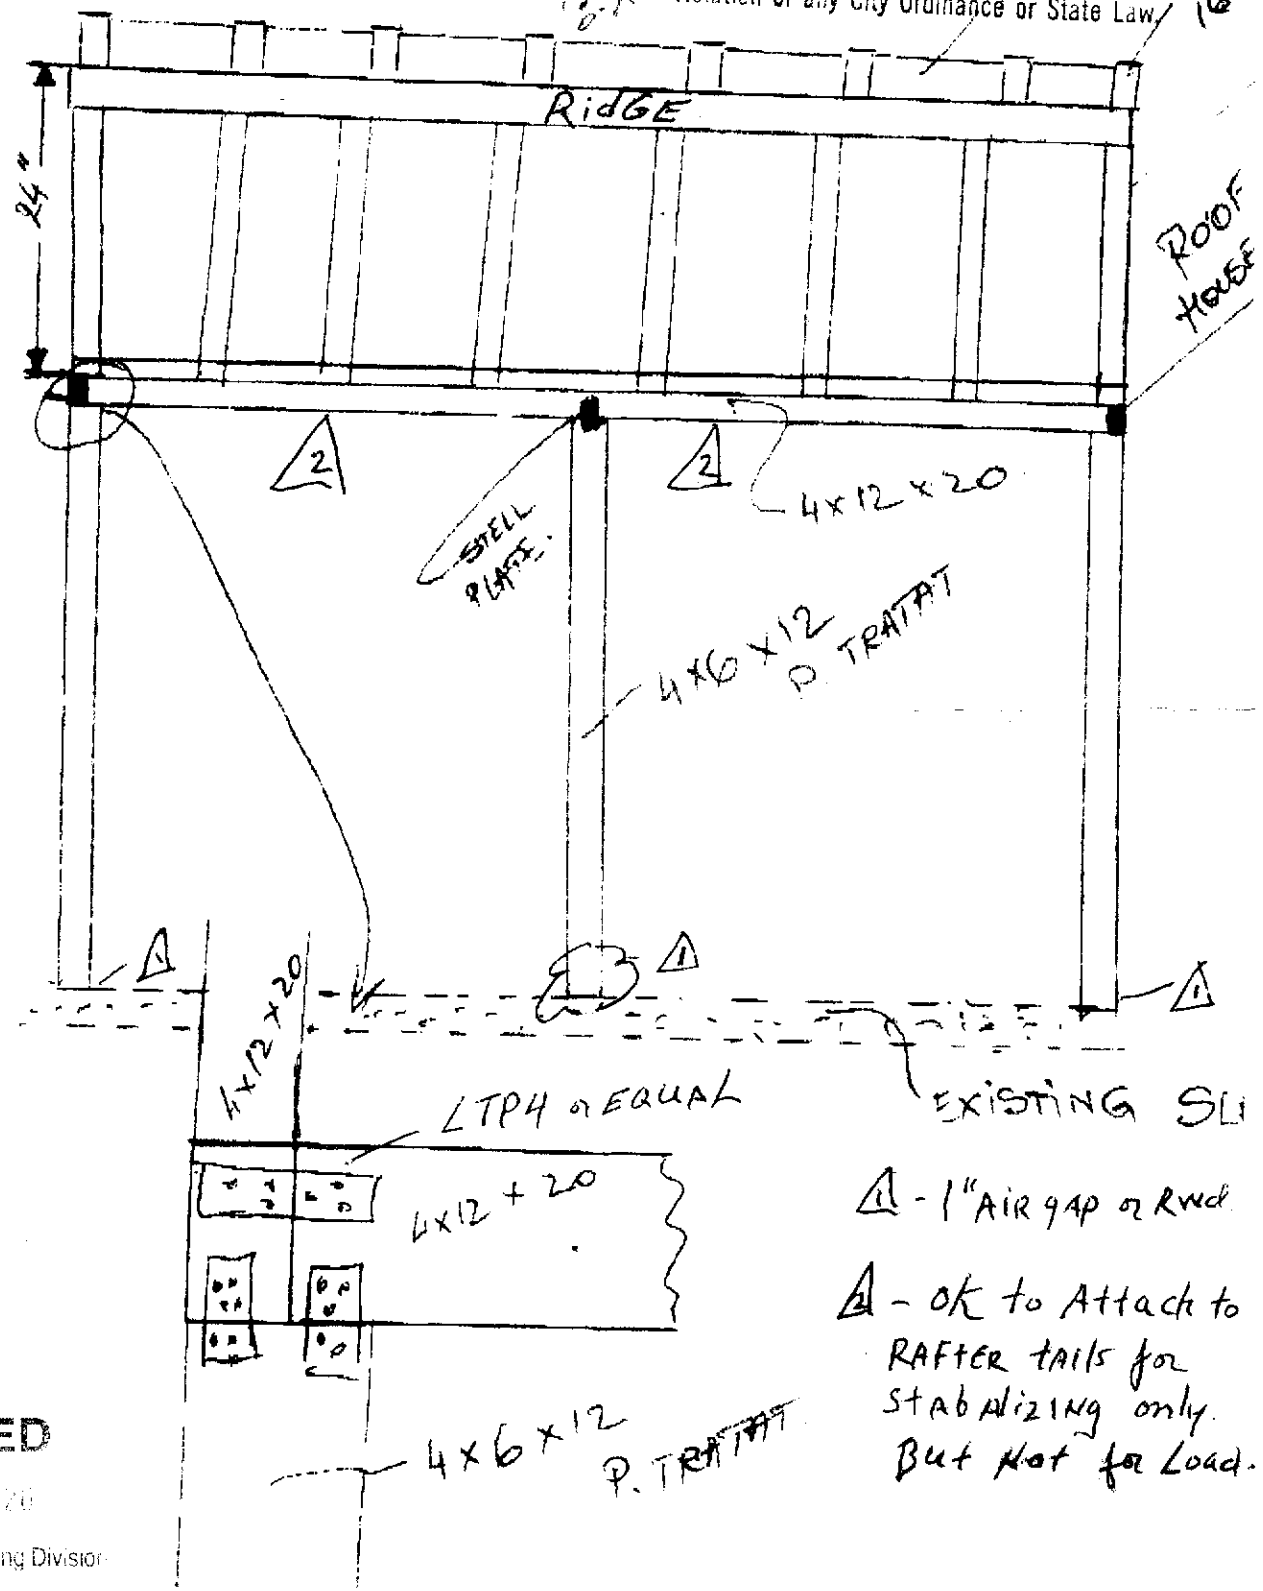 Violation of any City Ordinance or State Law,
RidGE
24"
ROOF
HOUSE
2
2
4x12x20
STELL
PLATE.
4x6x12
P. TRATAT
1
1
1
4x12x20
LTP4 or EQUAL
EXiSTiNG SL
4x12+20
1 - 1" AiR gAp or Rwd
2 - OK to Attach to
RAFtER tAils for
StAbAliziNg only.
But Not for Load.
4x6x12
P. TRATAT
ED
20
ng Division